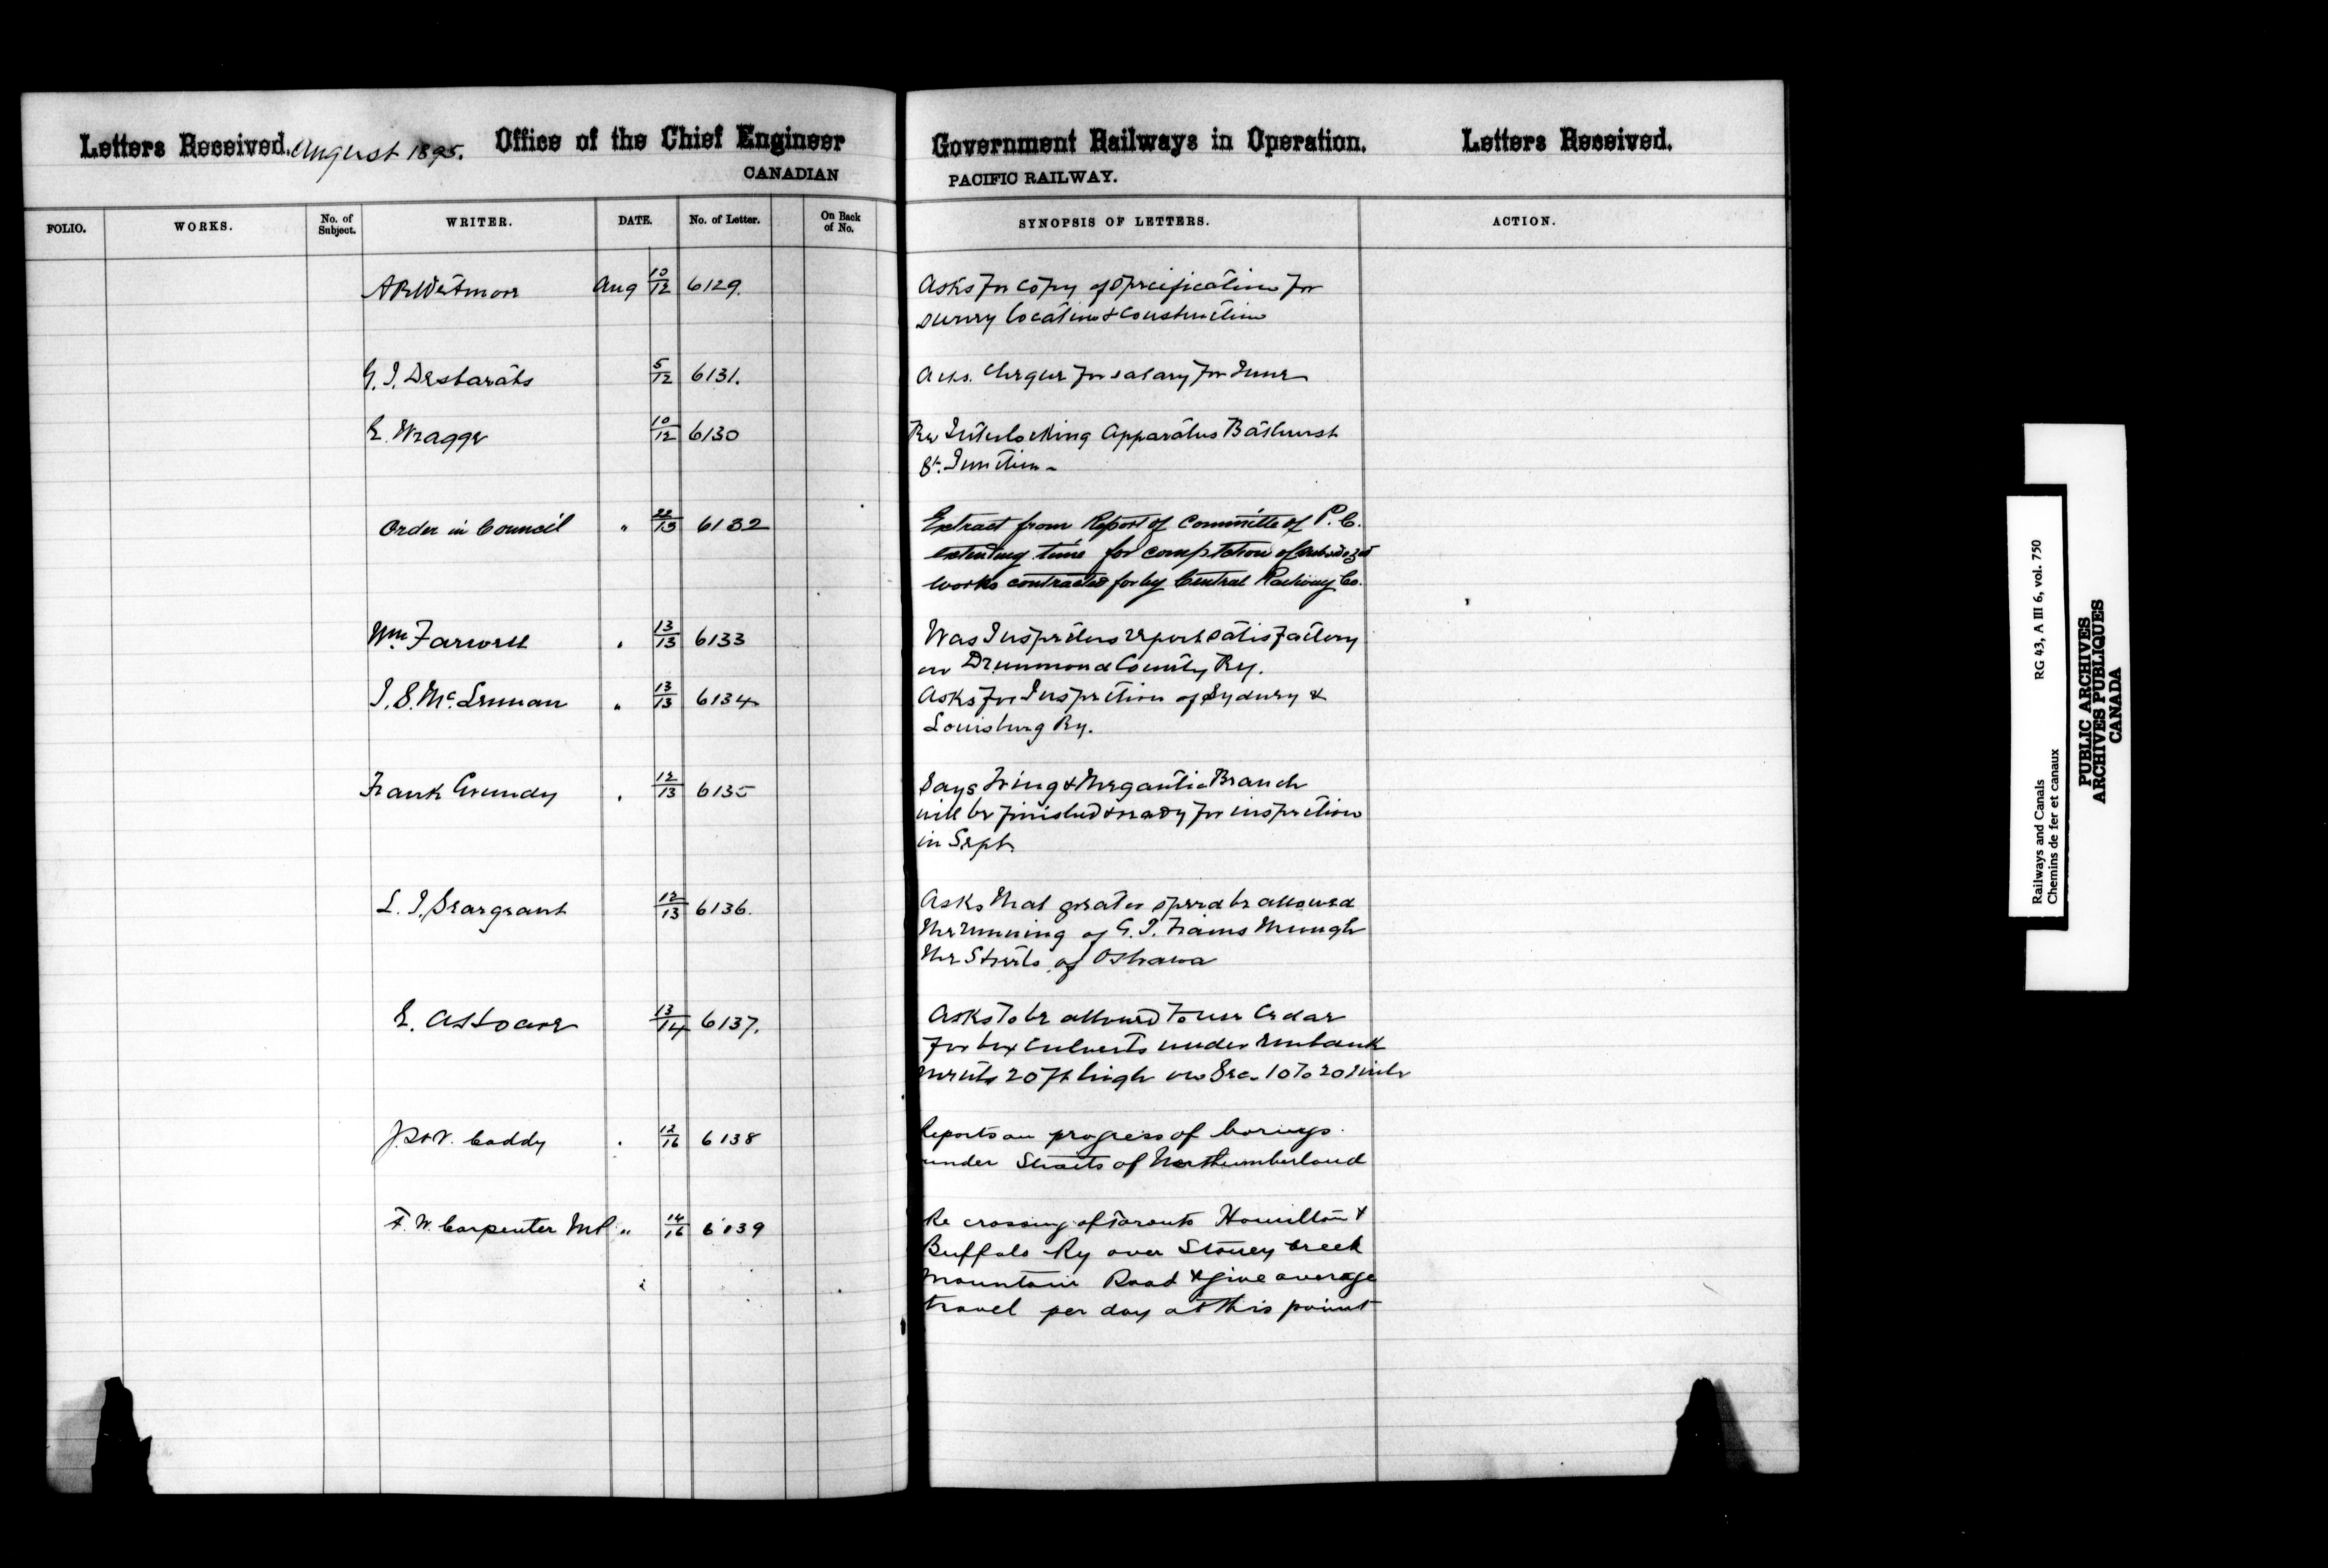 Letters Received. August 1895. Office of the Chief Engineer
CANADIAN
Government Railways in Operation. Letters Received.
PACIFIC RAILWAY.
FOLIO. WORKS. No. of Subject. WRITER. DATE. No. of Letter. On Back of No.
SYNOPSIS OF LETTERS. ACTION.
A R Wetmore Aug 10/12 6129. Asks for copy of specification for
survey location & construction
G. J. Desbarats 5/12 6131. Acks. Cheque for salary for June
E. Wragge 10/12 6130 Re Interlocking Apparatus Bathurst
St. Junction
Order in Council " 22/13 6132 Extract from Report of Committe of P. C.
extending time for completion of subsidized
works contracted for by Central Railway Co.
Wm Farwell " 13/13 6133 Was Inspectors report satisfactory
on Drummond County Ry.
J. S. Mc. Lennan " 13/13 6134 Asks for Inspection of Sydney &
Louisburg Ry.
Frank Grundy " 12/13 6135 Says Tring & Megantic Branch
will be finished & ready for inspection
in Sept.
L. J. Seargeant 12/13 6136. Asks that greater speed be allowed
the running of G. T. Trains through
the Streets of Oshawa
E. 13/14 6137. Asks to be allowed to use Cedar
for box culverts under embank
ments 20 ft high on Sec. 10 to 20 mile
Caddy " 12/16 6138 Reports on progress of borings
under Straits of Northumberland
F. W. Carpenter MP " 14/16 6139 Re crossing of Toronto Hamilton &
Buffalo Ry over Stoney Creek
Mountain Road & give average
travel per day at this point
Railways and Canals RG 43, A III 6, vol. 750
Chemins de fer et canaux
PUBLIC ARCHIVES
ARCHIVES PUBLIQUES
CANADA